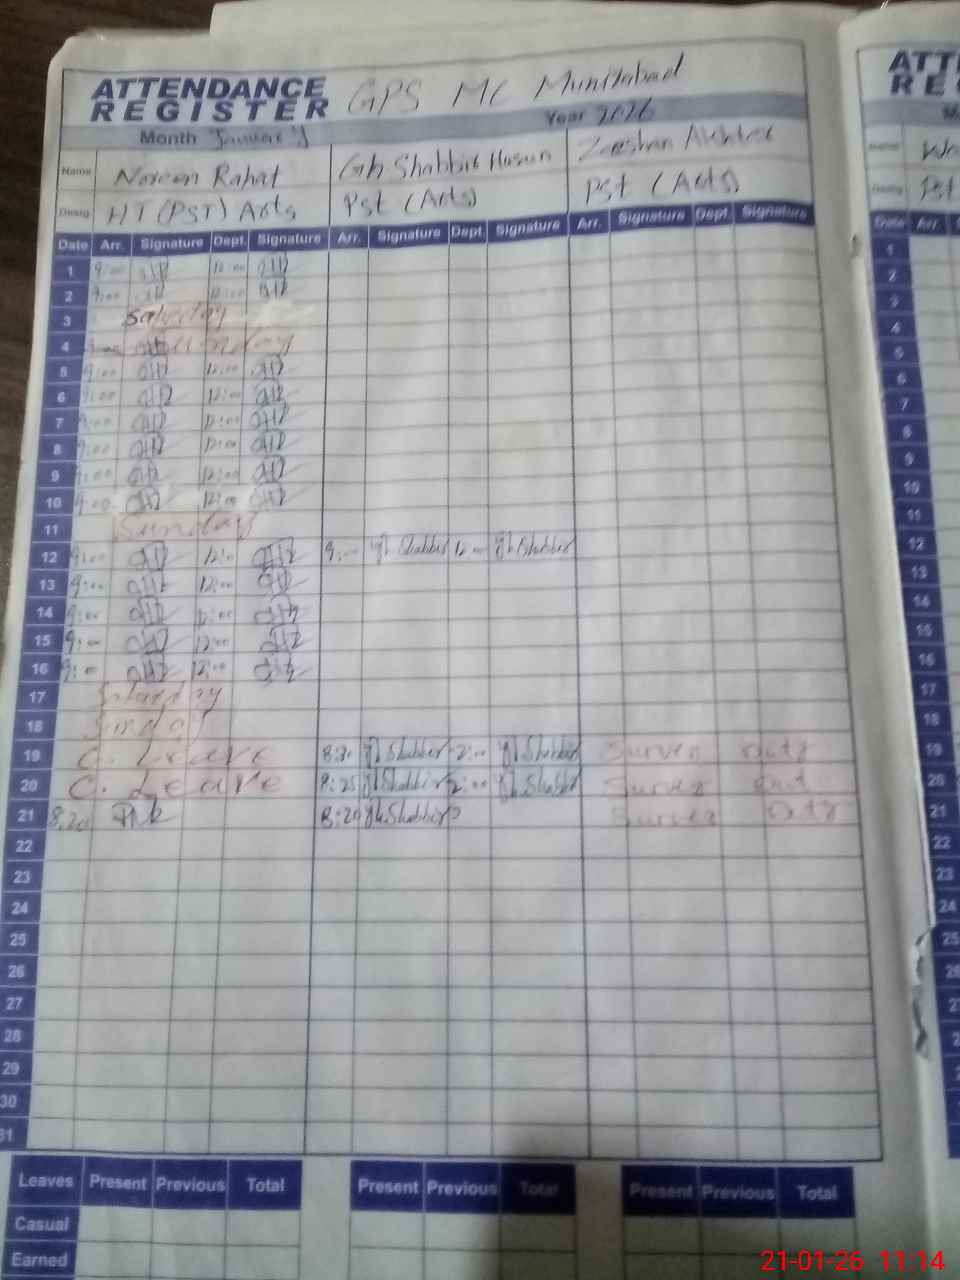 ATTENDANCE REGISTER GPS MC Munirabad
Month January Year 2026
Name Noreen Rahat Gh Shabbir Hasan Zeeshan Akhter
Desig HT (PST) Arts Pst (Arts) Pst (Arts)
Date Arr. Signature Dept. Signature Arr. Signature Dept. Signature Arr. Signature Dept. Signature
1 9:00 12:00
2 9:00 12:00
3 Saturday
4 9:00 Sunday
5 9:00 12:00
6 9:00 12:00
7 9:00 12:00
8 9:00 12:00
9 9:00 12:00
10 9:00 12:00
11 Sunday
12 9:00 12:00 9:00 Gh Shabbir 12:00 Gh Shabbir
13 9:00 12:00
14 9:00 12:00
15 9:00 12:00
16 9:00 12:00
17 Saturday
18 Sunday
19 C. Leave Gh Shabbir 2:00 Gh Shabbir Survey Duty
20 C. Leave 8:25 Gh Shabbir 2:00 Gh Shabbir Survey Duty
21 8:20 8:20 Gh Shabbir Survey Duty
22
23
24
25
26
27
28
29
30
31
Leaves Present Previous Total Present Previous Total Present Previous Total
Casual
Earned
ATT
RE
Name Wa
Desig Pst
Date Arr.
1
2
3
4
5
6
7
8
9
10
11
12
13
14
15
16
17
18
19
20
21
22
23
24
25
21-01-26 11:14